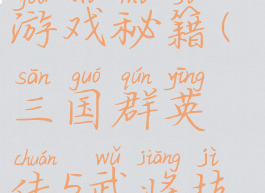 游戏秘籍(
sān guó qún yīng
三国群英
chuán wǔ jiàng jì
传5武将技